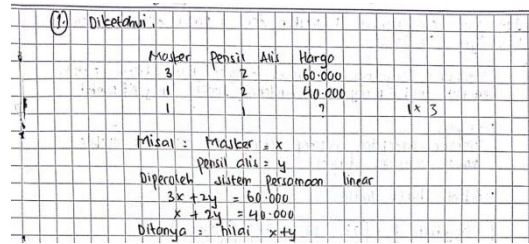 1. Diketahui.
Masker Pensil Alis Harga
3 2 60.000
1 2 40.000
1 1 ? 1 x 3
Misal : Masker = x
pensil alis = y
Diperoleh sistem persamaan linear
3x + 2y = 60.000
x + 2y = 40.000
Ditanya : nilai x+y